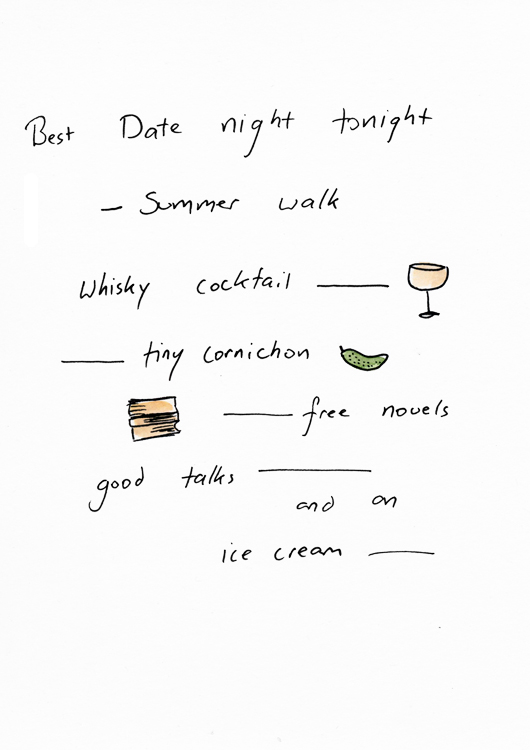 Best Date night tonight
– Summer walk
Whisky cocktail —
— tiny cornichon
— free novels
good talks —
and an
ice cream —